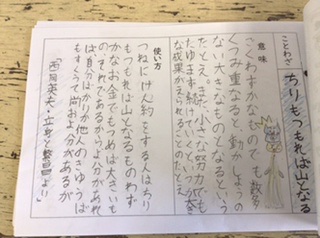 ことわざ
ちりもつもれば山となる
意味
ごくわずかなものでも数多
くつみ重なると動かしようの
ない大きなものとなるという
たとえ。また小さな努力でも
たゆまず続けていくといつか大き
な成果がえられることのたとえ
使い方
つねにけん約をする人はちり
もつもれば山となるものわず
かなお金でもつめば大きいも
のそれであるから、よ分があれ
ば自分ばかりか他人のきゅうば
もすくうて尚およ分があるが